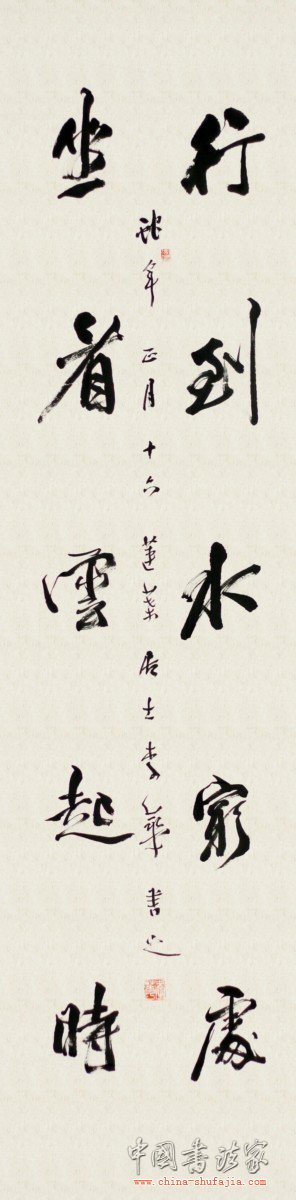 行到水窮處
坐看雲起時
蛇年正月十六蓮葉居士李華書之
中國書法家
www.china-shufajia.com